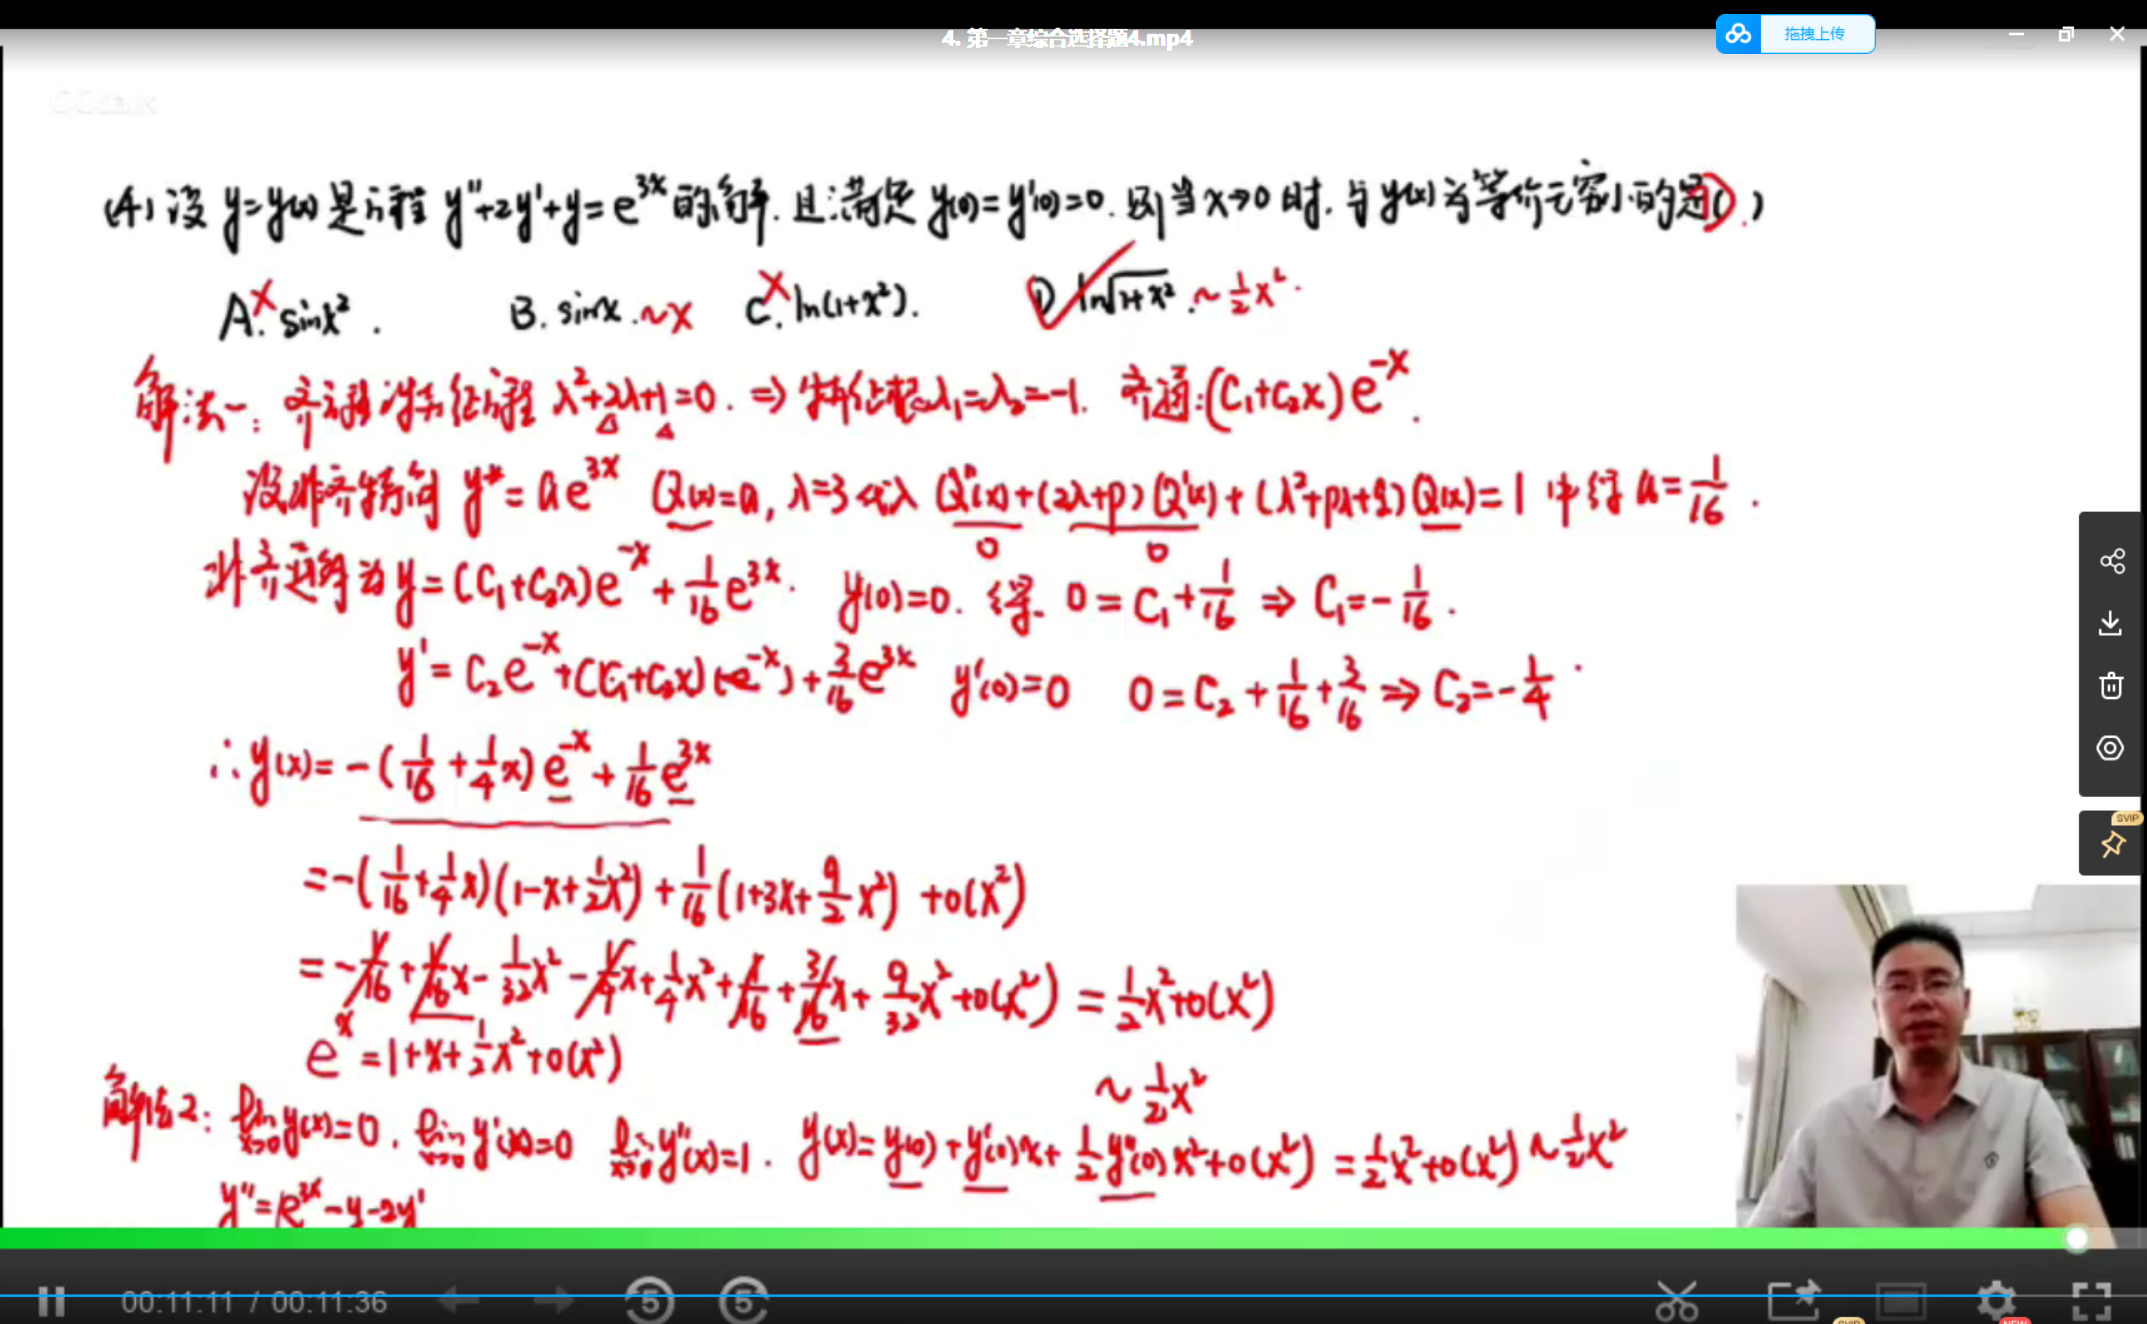 4. 第一章综合选择题4.mp4
拖拽上传
(4) 设 y=y(x) 是方程 y''+2y'+y=e^{3x} 的解. 且满足 y(0)=y'(0)=0. 则当 x→0 时. 与 y(x) 为等价无穷小的是( D )
A. sinx². B. sinx. ~x C. ln(1+x²). D. ln√(1+x²). ~ ½x².
解法一: 齐方程对应特征方程 λ²+2λ+1=0. ⇒ 特征根 λ₁=λ₂=-1. 齐通: (C₁+C₂x)e^{-x}.
设非齐特解 y*=ae^{3x} Q(x)=a, λ=3 代入 Q''(x)+(2λ+p)Q'(x)+(λ²+pλ+q)Q(x)=1 中得 a=1/16.
0 0
非齐通解为 y=(C₁+C₂x)e^{-x}+1/16 e^{3x}. y(0)=0. 得 0=C₁+1/16 ⇒ C₁=-1/16.
y'=C₂e^{-x}+(C₁+C₂x)(-e^{-x})+3/16 e^{3x} y'(0)=0 0=C₂+1/16+3/16 ⇒ C₂=-1/4.
∴ y(x)=-(1/16+1/4x)e^{-x}+1/16 e^{3x}
=-(1/16+1/4x)(1-x+½x²)+1/16(1+3x+9/2x²)+o(x²)
=-1/16+1/16x-1/32x²-1/4x+1/4x²+1/16+3/16x+9/32x²+o(x²)=½x²+o(x²)
e^x=1+x+½x²+o(x²)
~½x²
解法2: lim_{x→0} y(x)=0. lim_{x→0} y'(x)=0 lim_{x→0} y''(x)=1. y(x)=y(0)+y'(0)x+½y''(0)x²+o(x²)=½x²+o(x²)~½x²
y''=e^{3x}-y-2y'
SVIP
00:11:11 / 00:11:36
5 5
SVIP
NEW